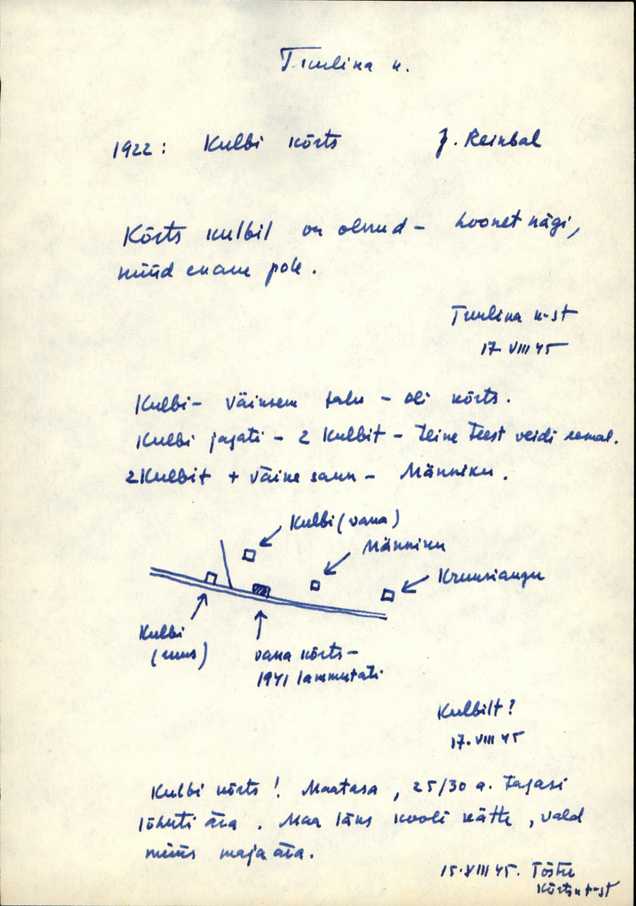 Tuulina k.
1922: Kulbi kõrts J. Reinbal
Kõrts Kulbil on olnud – hoonet nägi,
nüüd enam pole.
Tuulina k-st
17. VIII 45
Kulbi – väiksem talu – oli kõrts.
Kulbi jagati – 2 Kulbit – teine teest veidi eemal.
2 Kulbit + väike saun – Männiku.
Kulbi (vana)
Männiku
Kruusiaugu
Kulbi
(uus)
vana kõrts –
1941 lammutati
Kulbilt?
17. VIII 45
Kulbi kõrts! Maatasa, 25/30 a. tagasi
lõhuti ära. Maa läks kooli kätte, vald
müüs maja ära.
15. VIII 45. Tõstu